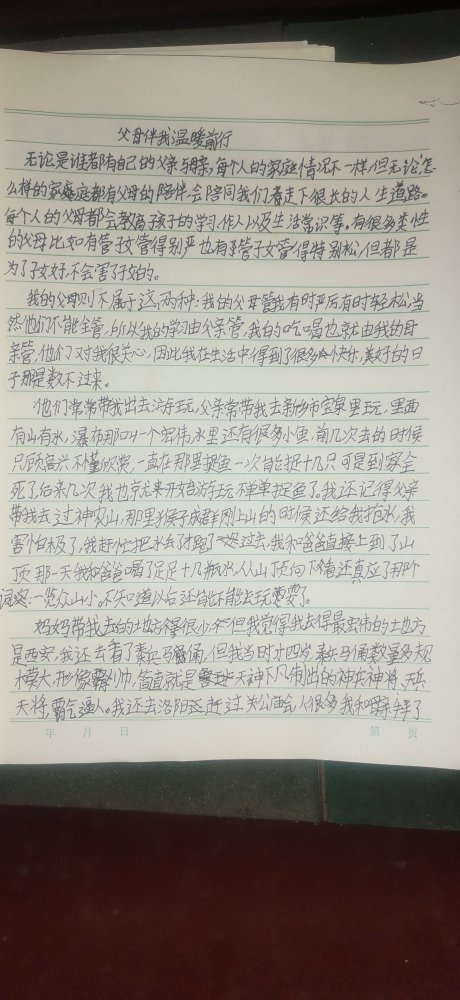 父母伴我温暖前行
无论是谁都有自己的父亲与母亲,每个人的家庭情况不一样,但无论怎
么样的家庭都有父母的陪伴会陪同我们着走下很长的人生道路。
每个人的父母都会教育孩子的学习,作人以及生活常识等。有很多类性
的父母比如有管子女管得别严也有管子女管得特别松,但都是
为了子女好,不会害了子女的。
我的父母则不属于这两种:我的父母管我有时严后有时轻松,当
然他们不能全管,所以我的学习由父亲管,我的吃喝也就由我的母
亲管,他们对我很关心,因此我在生活中得到了很多快乐,美好的日
子那是数不过来。
他们常常带我出去游玩,父亲常带我去新乡市宝泉里玩,里面
有山有水,瀑布那叫一个宏伟,水里还有很多小鱼,前几次去的时候
只顾高兴不懂欣赏,一直在那里捉鱼一次能捉十几只可是到家全
死了,后来几次我也就尤来开始游玩不单单捉鱼了。我还记得父亲
带我去过神农山,那里猴子成群刚上山的时候还给我抢水,我
害怕极了,我赶忙把水丢了才跑了过去,我和爸爸直接上到了山
顶那一天我和爸爸喝了足足十几瓶水,从山顶向下看还真应了那个
词:一览众山小。不知道以后还能不能去玩耍了。
妈妈带我去的地方得很少但我觉得我去得最宏伟的地方
是西安,我还去看了秦兵马俑,但我当时才四岁秦兵马俑数量多规
模大,形像帅,简直就是天神下凡制出的神兵神将,天兵
天将,霸气逼人。我还去洛阳赶过关公庙会,人很多我和拜了
年 月 日 第 页